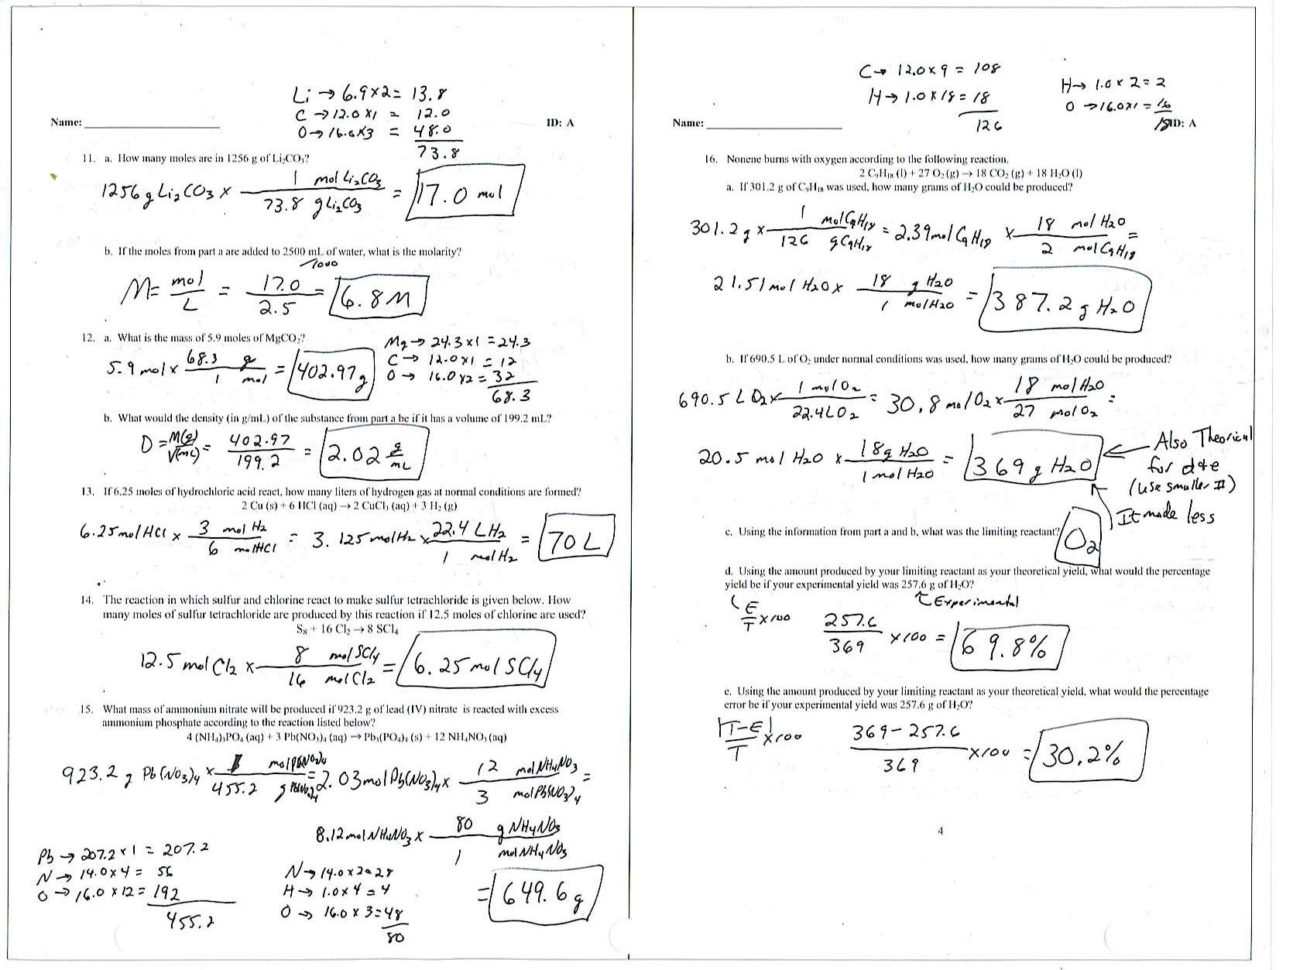 Li → 6.9x2 = 13.8
C → 12.0 x1 = 12.0
O → 16.0x3 = 48.0
73.8
Name:
ID: A
11. a. How many moles are in 1256 g of Li₂CO₃?
1256 g Li₂CO₃ x 1 mol Li₂CO₃ / 73.8 g Li₂CO₃ = 17.0 mol
b. If the moles from part a are added to 2500 mL of water, what is the molarity?
/1000
M = mol / L = 17.0 / 2.5 = 6.8 M
12. a. What is the mass of 5.9 moles of MgCO₃?
5.9 mol x 68.3 g / 1 mol = 402.97 g
Mg → 24.3 x1 = 24.3
C → 12.0x1 = 12
O → 16.0 x2 = 32
68.3
b. What would the density (in g/mL) of the substance from part a be if it has a volume of 199.2 mL?
D = M(g) / V(mL) = 402.97 / 199.2 = 2.02 g/mL
13. If 6.25 moles of hydrochloric acid react, how many liters of hydrogen gas at normal conditions are formed?
2 Cu (s) + 6 HCl (aq) → 2 CuCl₃ (aq) + 3 H₂ (g)
6.25 mol HCl x 3 mol H₂ / 6 mol HCl = 3.125 mol H₂ x 22.4 L H₂ / 1 mol H₂ = 70 L
14. The reaction in which sulfur and chlorine react to make sulfur tetrachloride is given below. How
many moles of sulfur tetrachloride are produced by this reaction if 12.5 moles of chlorine are used?
S₈ + 16 Cl₂ → 8 SCl₄
12.5 mol Cl₂ x 8 mol SCl₄ / 16 mol Cl₂ = 6.25 mol SCl₄
15. What mass of ammonium nitrate will be produced if 923.2 g of lead (IV) nitrate is reacted with excess
ammonium phosphate according to the reaction listed below?
4 (NH₄)₃PO₄ (aq) + 3 Pb(NO₃)₄ (aq) → Pb₃(PO₄)₄ (s) + 12 NH₄NO₃ (aq)
923.2 g Pb(NO₃)₄ x 1 mol Pb(NO₃)₄ / 455.2 g Pb(NO₃)₄ = 2.03 mol Pb(NO₃)₄ x 12 mol NH₄NO₃ / 3 mol Pb(NO₃)₄ =
8.12 mol NH₄NO₃ x 80 g NH₄NO₃ / 1 mol NH₄NO₃
= 649.6 g
Pb → 207.2 x 1 = 207.2
N → 14.0x4 = 56
O → 16.0 x 12 = 192
455.2
N → 14.0x2=28
H → 1.0x4=4
O → 16.0 x 3=48
80
C → 12.0x9 = 108
H → 1.0x18 = 18
126
H → 1.0 x 2 = 2
O → 16.0x1 = 16
18
Name:
ID: A
16. Nonene burns with oxygen according to the following reaction.
2 C₉H₁₈ (l) + 27 O₂ (g) → 18 CO₂ (g) + 18 H₂O (l)
a. If 301.2 g of C₉H₁₈ was used, how many grams of H₂O could be produced?
301.2 g x 1 mol C₉H₁₈ / 126 g C₉H₁₈ = 2.39 mol C₉H₁₈ x 18 mol H₂O / 2 mol C₉H₁₈ =
21.51 mol H₂O x 18 g H₂O / 1 mol H₂O = 387.2 g H₂O
b. If 690.5 L of O₂ under normal conditions was used, how many grams of H₂O could be produced?
690.5 L O₂ x 1 mol O₂ / 22.4 L O₂ = 30.8 mol O₂ x 18 mol H₂O / 27 mol O₂ =
20.5 mol H₂O x 18g H₂O / 1 mol H₂O = 369 g H₂O
Also Theorical
for d+e
(use smaller #)
It made less
c. Using the information from part a and b, what was the limiting reactant?
O₂
d. Using the amount produced by your limiting reactant as your theoretical yield, what would the percentage
yield be if your experimental yield was 257.6 g of H₂O?
Experimental
E / T x100 257.6 / 369 x100 = 69.8%
e. Using the amount produced by your limiting reactant as your theoretical yield, what would the percentage
error be if your experimental yield was 257.6 g of H₂O?
|T-E| / T x100 369-257.6 / 369 x100 = 30.2%
4